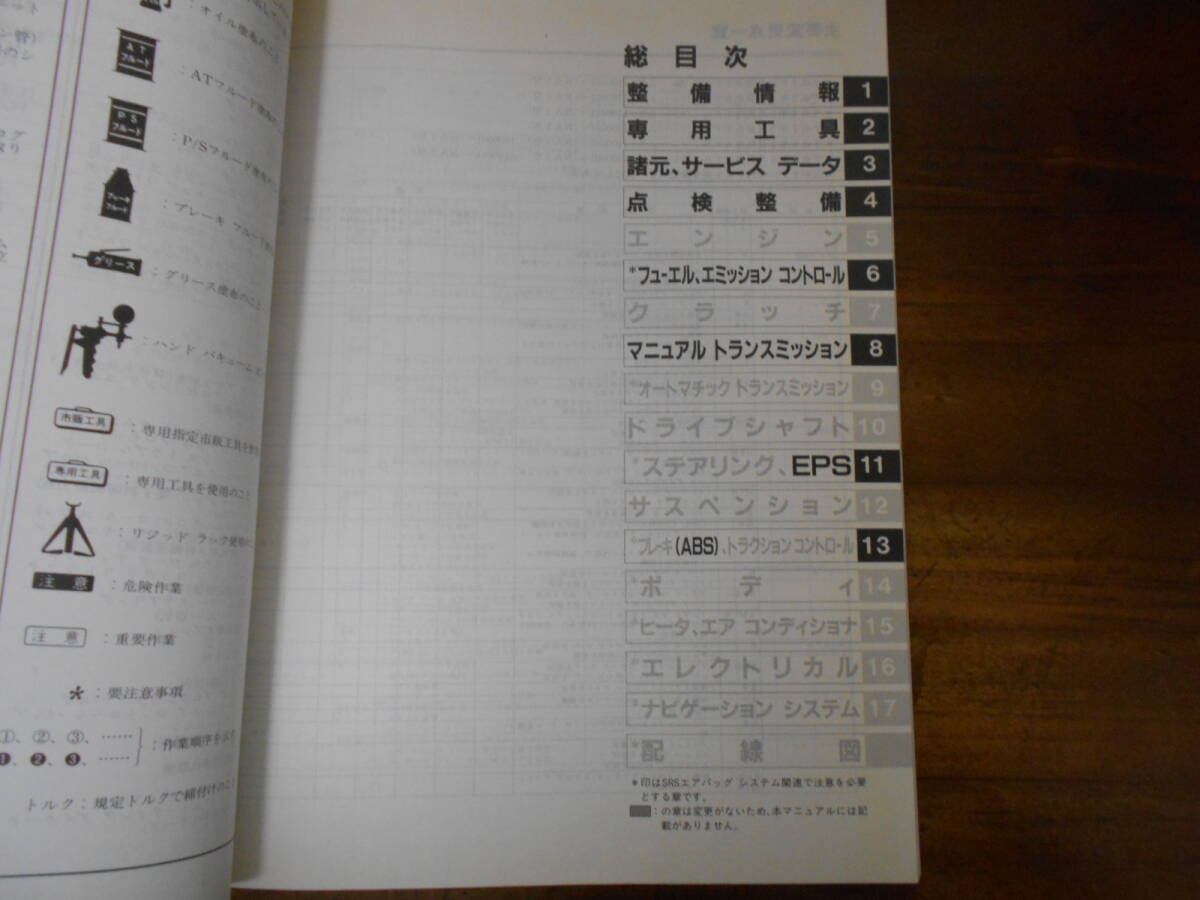 ：オイル塗布のこと
AT
フルード
：ATフルード塗布の
PS
フルード
：P/Sフルード塗布の
ブレーキ
フルード
：ブレーキ フルード
グリース
：グリース塗布のこと
：ハンド バキューム
市販工具
：専用指定市販工具を
専用工具
：専用工具を使用のこと
：リジッド ラック使用
注 意
：危険作業
注 意
：重要作業
*：要注意事項
①、②、③、……
❶、❷、❸、……
：作業順序を
トルク：規定トルクで締付けのこ
総目次
整備情報 1
専用工具 2
諸元、サービス データ 3
点検整備 4
エンジン 5
*フューエル、エミッション コントロール 6
クラッチ 7
マニュアル トランスミッション 8
*オートマチック トランスミッション 9
ドライブシャフト 10
*ステアリング、EPS 11
サスペンション 12
*ブレーキ(ABS)、トラクション コントロール 13
*ボディ 14
*ヒータ、エア コンディショナ 15
*エレクトリカル 16
*ナビゲーション システム 17
*配線図
*印はSRSエアバッグ システム関連で注意を必要
とする章です。
：の章は変更がないため、本マニュアルには記
載がありません。